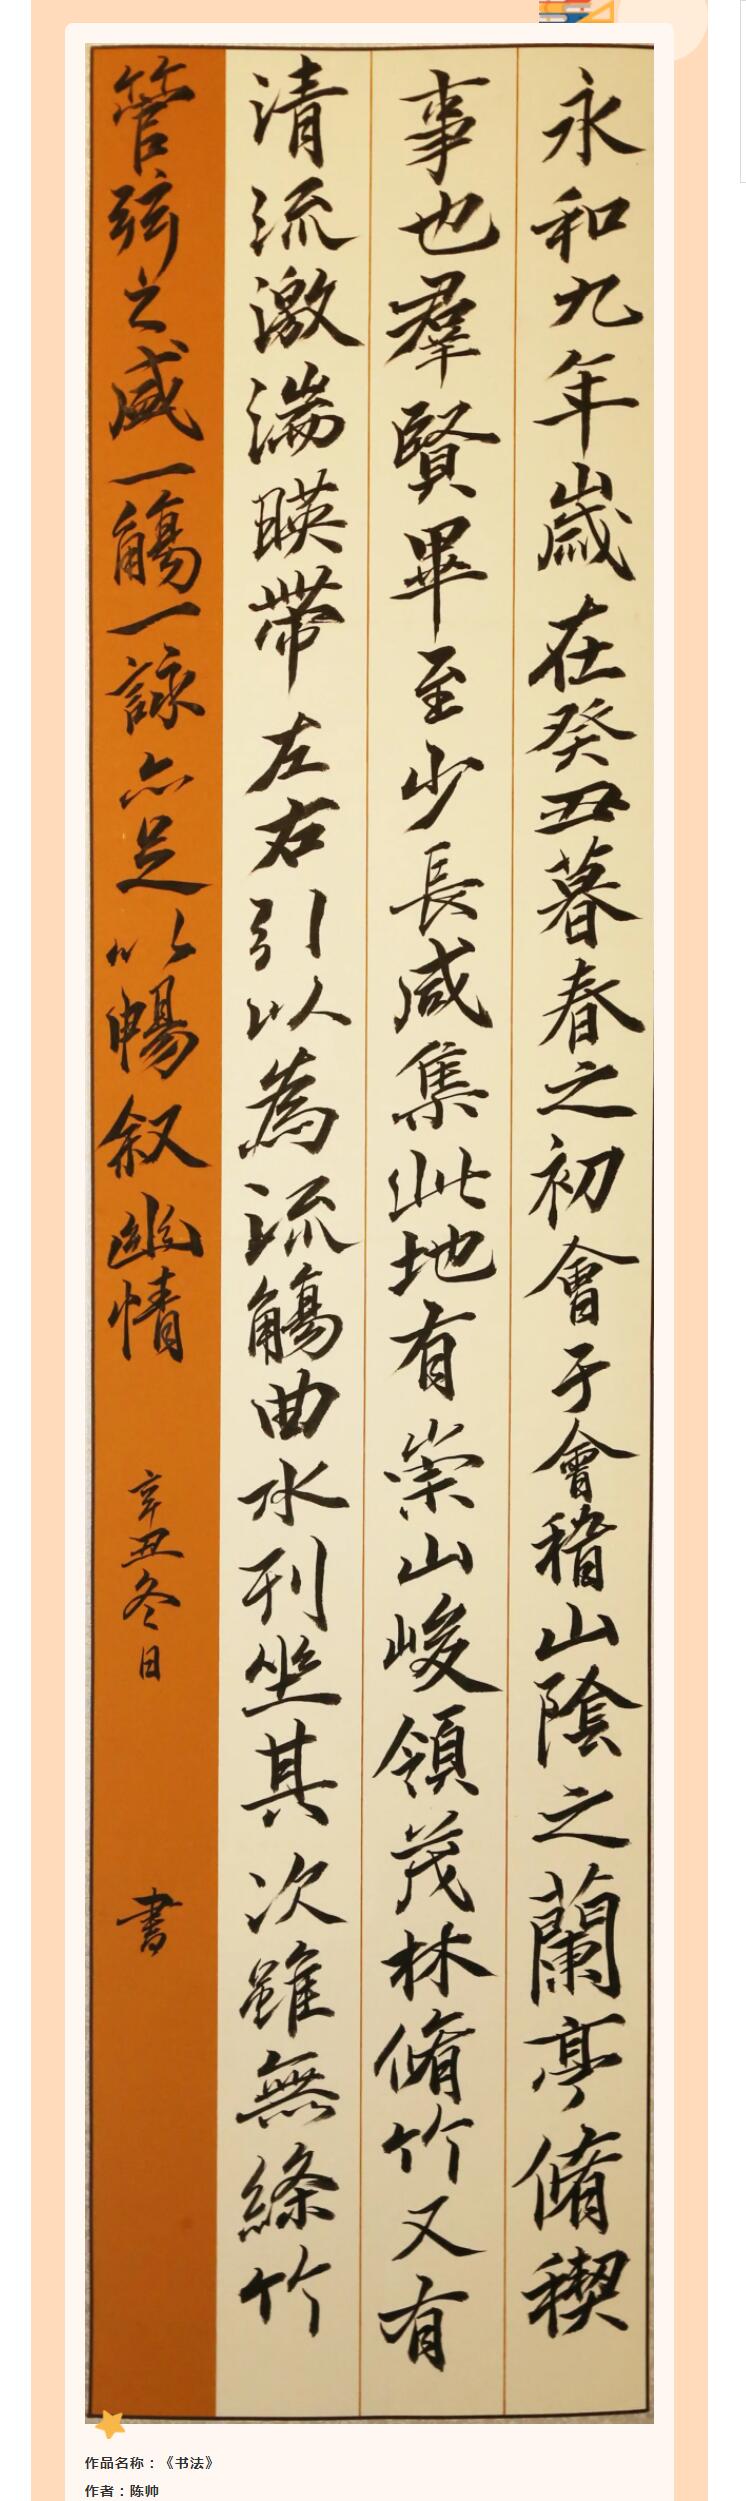 永和九年歲在癸丑暮春之初會于會稽山陰之蘭亭脩稧
事也羣賢畢至少長咸集此地有崇山峻領茂林脩竹又有
清流激湍暎帶左右引以為流觴曲水列坐其次雖無絲竹
管弦之盛一觴一詠亦足以暢叙幽情
辛丑冬日 書
作品名称：《书法》
作者：陈帅